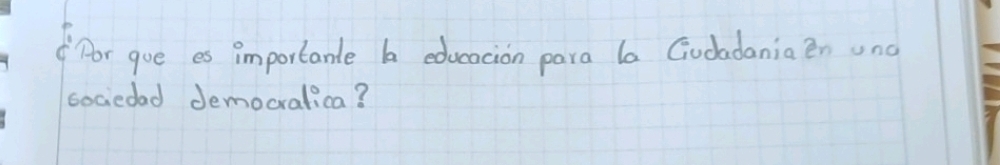 ¿Por que es importante la educación para la Ciudadania en una
sociedad democratica?